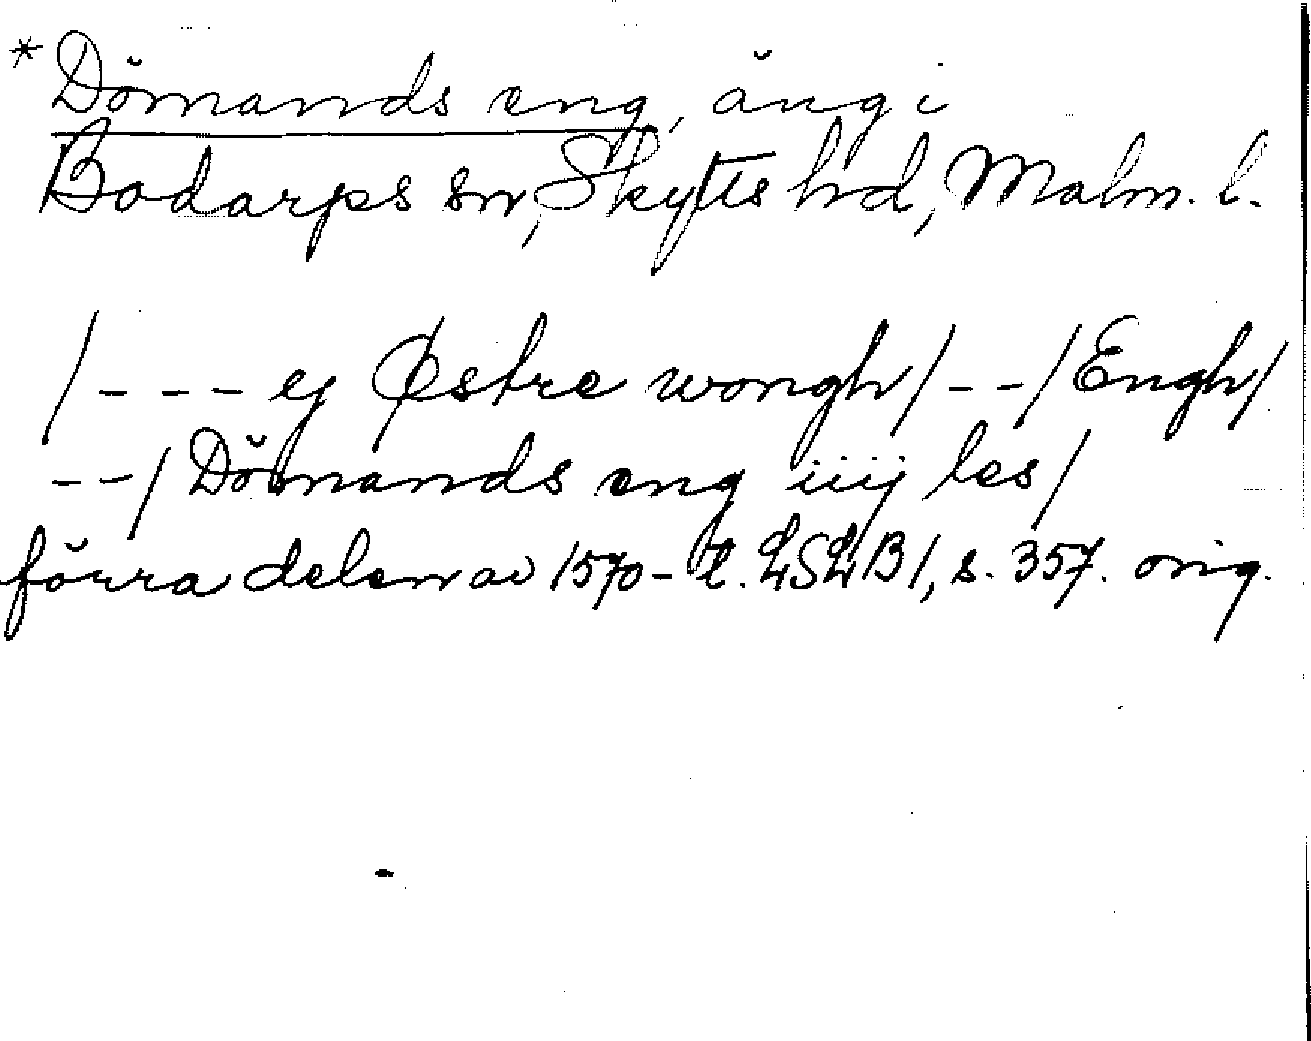 * Dömands eng, äng i
Bodarps sn, Skytts hd, Malm. l.
/--- ej Østre wongh/--/Engh/
--/Dömands eng iiij les/
förra delen av 1570-t. LSLB1, s. 357. orig.